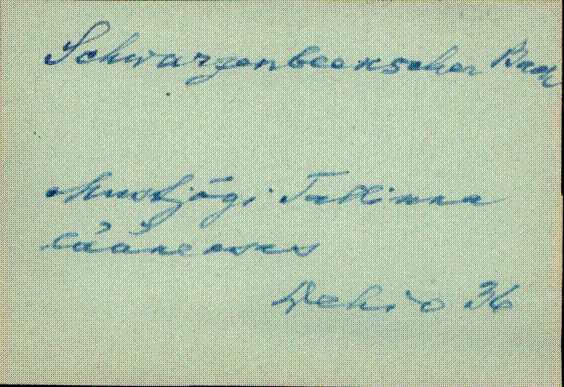 Schwarzenbeekscher Bach
Mustjõgi Tallinna
lääneosas
Dehio 36